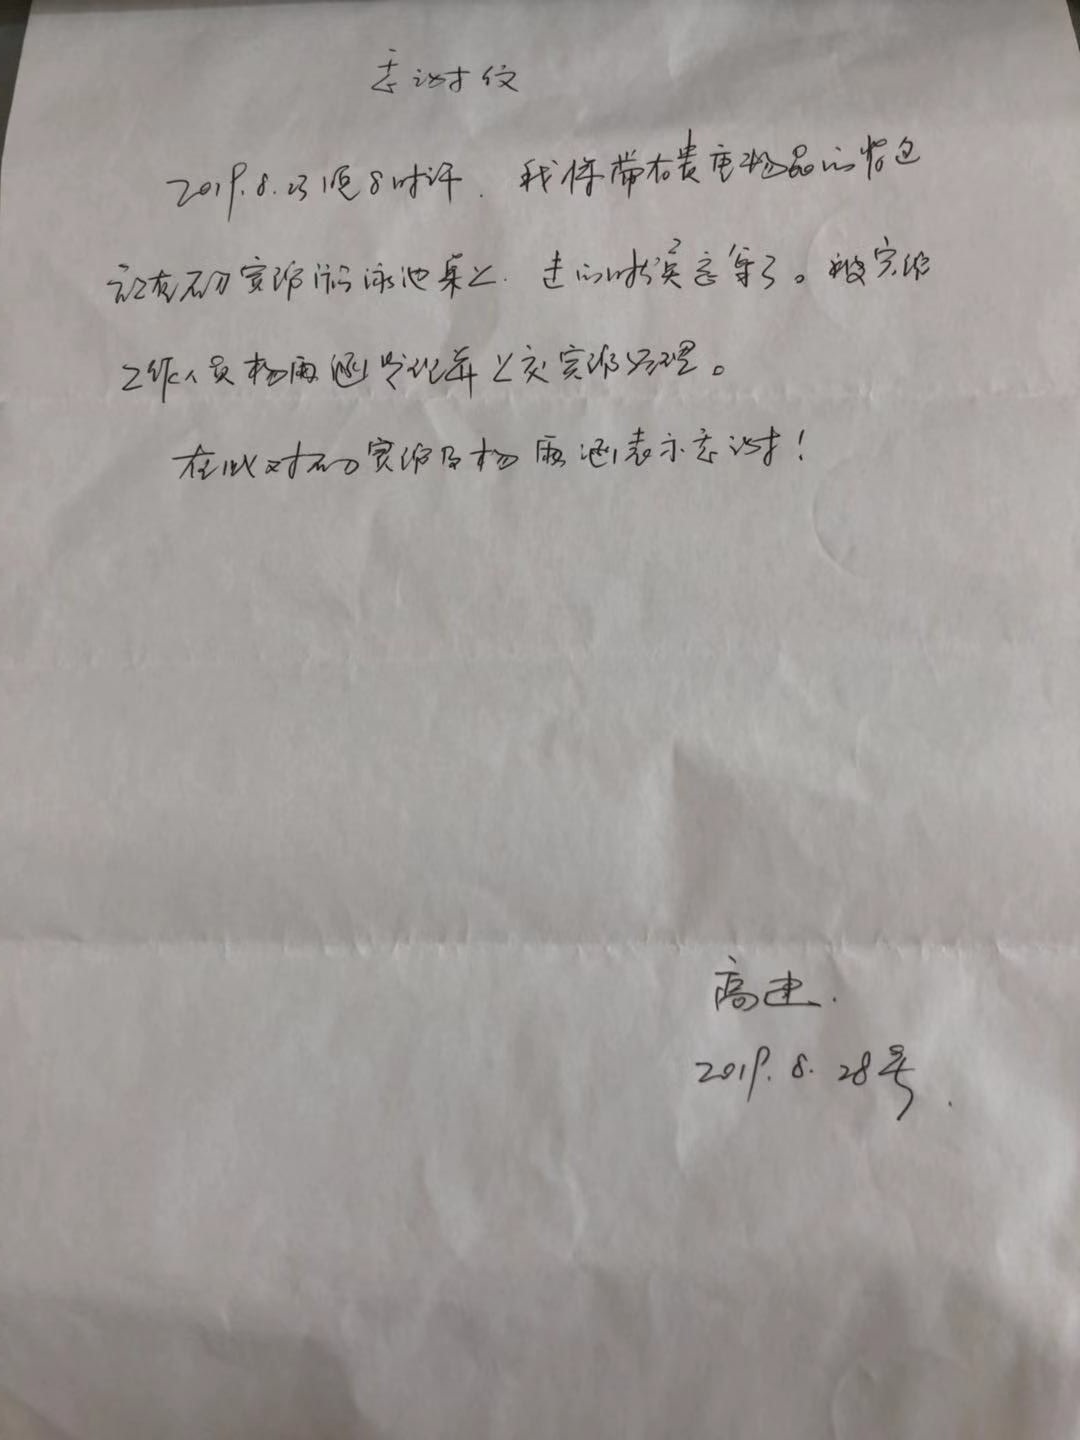 感谢信
2019.8.23晚8时许. 我将带有贵重物品的背包
放在石力宾馆游泳池桌上. 走的时候忘拿了。被宾馆
工作人员杨雨涵发现并上交宾馆经理。
在此对宾馆及杨雨涵表示感谢!
高建.
2019.8.28号.